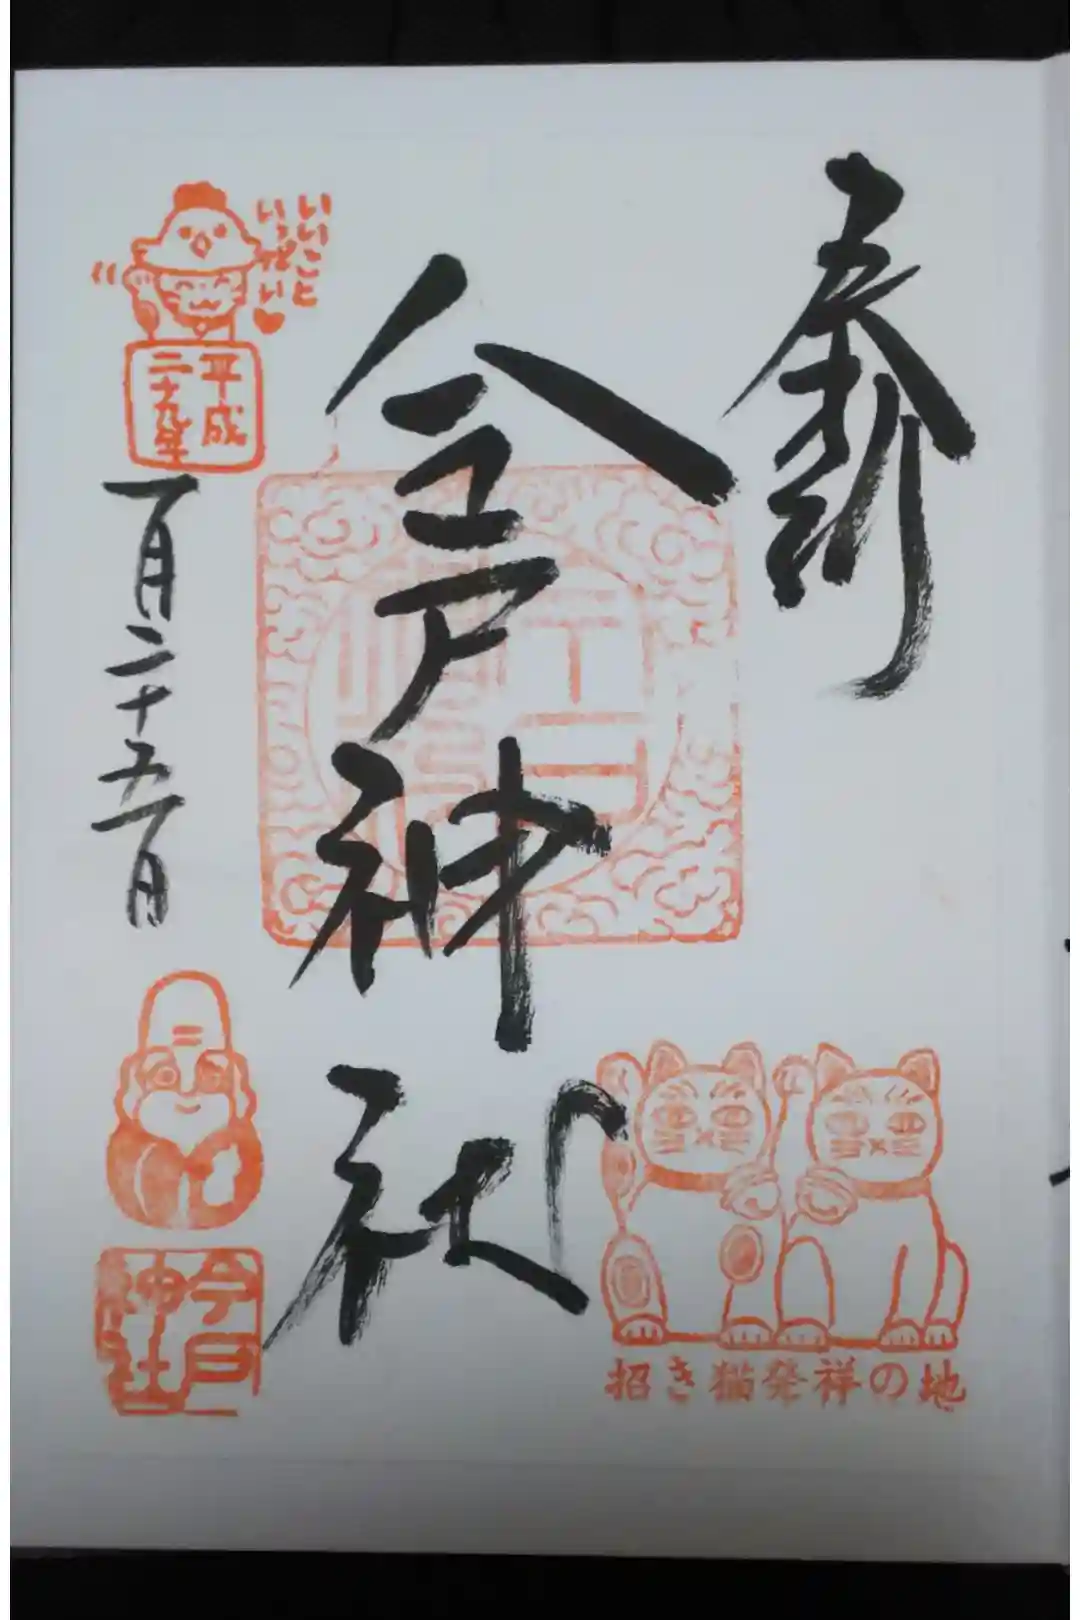 奉拝
招き猫発祥の地
今戸神社
いいこと
いっぱい♥
平成
二十九年
一月二十五日
今戸
神社